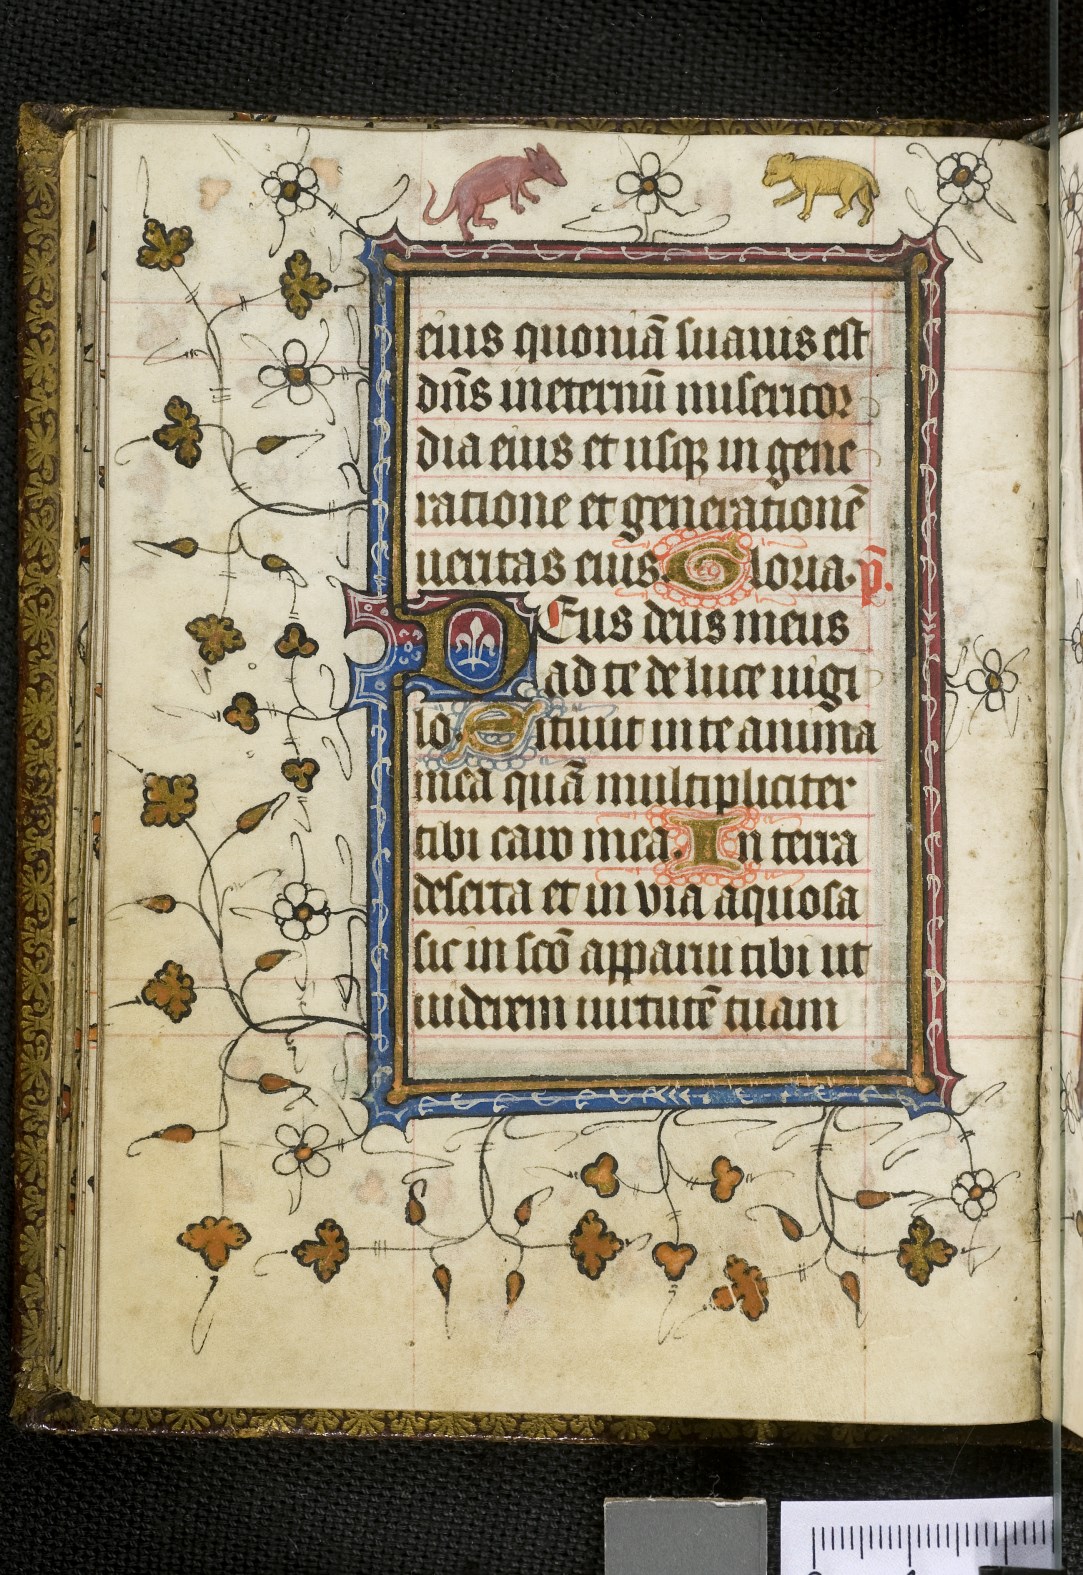 eius quoniā suauis est
dn̄s in eternū misericor
dia eius et usqꝫ in gene
ratione et generationē
ueritas eius. Gloria. p̄.
Deus deus meus
ad te de luce uigi
lo. Sitiuit in te anima
mea quā multipliciter
tibi caro mea. In terra
deserta et in via aquosa
sic in scō apparui tibi ut
uiderem uirtutē tuam